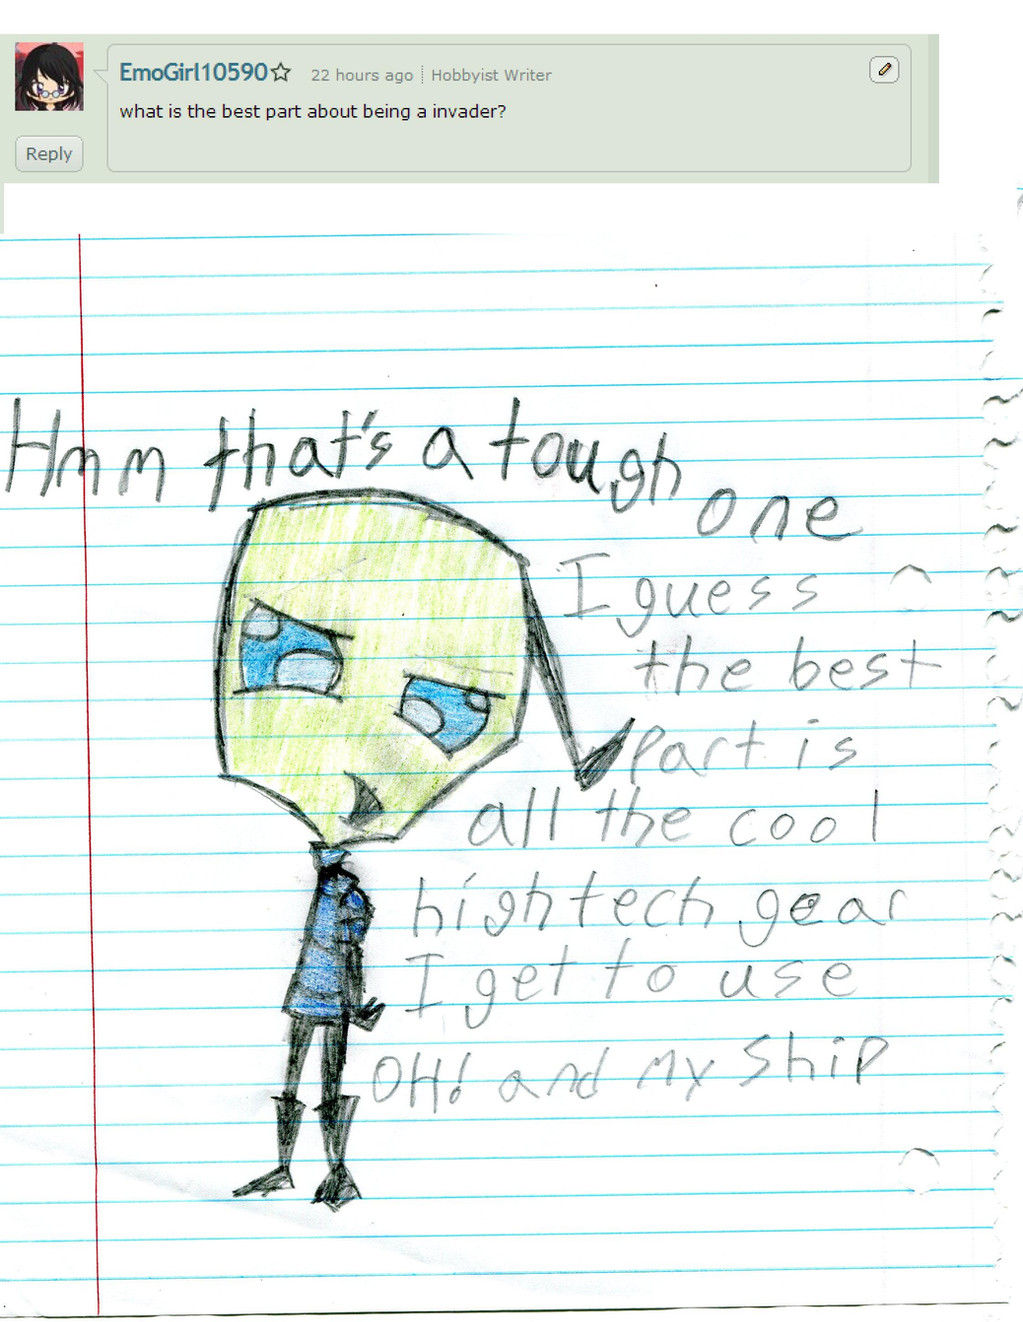 EmoGirl10590 22 hours ago Hobbyist Writer
what is the best part about being a invader?
Reply
Hmm that's a tough one
I guess
the best
part is
all the cool
high tech gear
I get to use
OH! and my ship